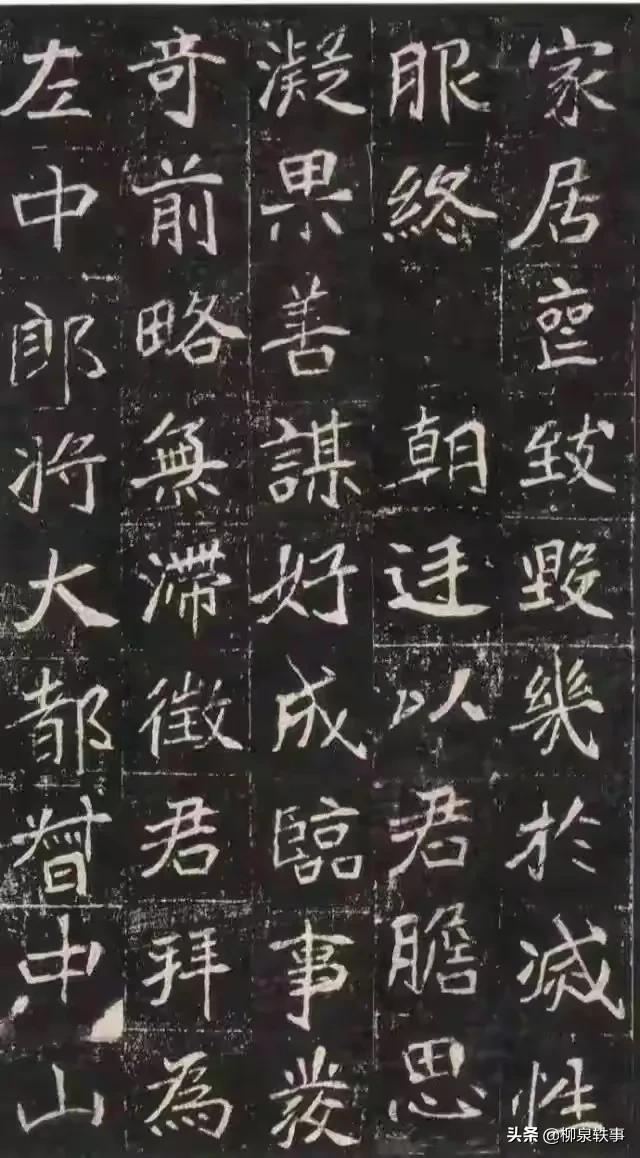 家居喪致毀幾於滅性
服終 朝廷以君膽思
凝果善謀好成臨事發
奇前略無滯徵君拜為
左中郎将大都督中山
头条 @柳泉轶事